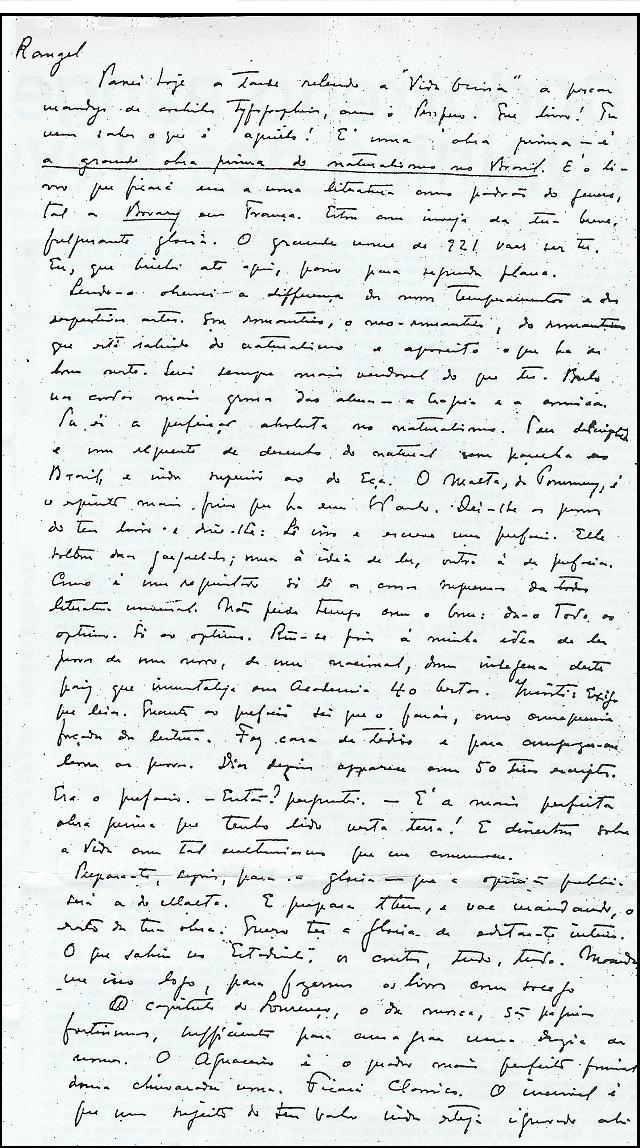 Rangel
Passei hoje a tarde relendo a "Vida Ociosa" a passar
de architecto typographico, como o Que livro! Tu
nem sabes o que é aquillo! E' uma obra prima — é
a grande obra prima do naturalismo no Brasil. E' o li-
vro que ficará em a uma literatura como padrão do genero,
tal a Bovary em França. Estou com inveja da tua
gloria. O grande nome de 921 vaes ser tu.
Eu, que até aqui, passo para segundo plano.
Lendo-o observei a differença dos nossos temperamentos e das
respectivas artes. Sou romantico, o neo-romantico, do romantico
que está sahindo do naturalismo e aproveita o que ha de
bom neste. Serei sempre mais vendavel do que tu. Bulo
nas cordas mais grossas das almas — a tragica e a comica.
Tu és a perfeição absoluta no naturalismo. Teu
é um requinte de desenho do natural sem parelha no
Brasil, e inda superior ao do Eça. O Moatta, do é
o espirito mais fino que ha em S. Paulo. Dei-lhe as provas
do teu livro e disse-lhe: Lê isso e escreve um prefacio. Elle
soltou duas gargalhadas; uma á ideia de ler, outra á de prefaciar.
Como é um requintado só lê as cousas supremas de todas
literatura universal. Não perde tempo com o bom: dá-o todo ao
optimo. Só ao optimo. Riu-se pois á minha idea de ler
provas de um novo, de um nacional, dum indigena deste
paiz que immortaliza em Academia 40 bestas. Insisti. Exigi
que leia. Quanto ao prefacio sei que o farás, como consequencia
forçada da leitura. Fez cara de tedio e para
levou as provas. Dias depois apparece com 50 tiras escriptas.
Era o prefacio. — Então? perguntei. — E' a mais perfeita
obra prima que tenho lido nesta terra! E discorreu sobre
a Vida com tal enthusiasmo que me commoveu.
Prepara-te, pois, para a gloria — que a opinião publica
será a do Moatta. E prepara e vae mandando, o
resto da tua obra. Quero ter a gloria de editar-te inteiro.
O que sahiu no "Estadinho", os contos, tudo, tudo. Manda-
me isso logo, para fazermos os livros com socego
O capitulo do Lourenço, o da mosca, são paginas
fortissimas, sufficientes para consagrar uma duzia de
nomes. O Aguaceiro é o quadro mais perfeito
duma chuvarada nossa. Ficará classico. O incrivel é
que um sujeito do teu valor inda esteja ignorado